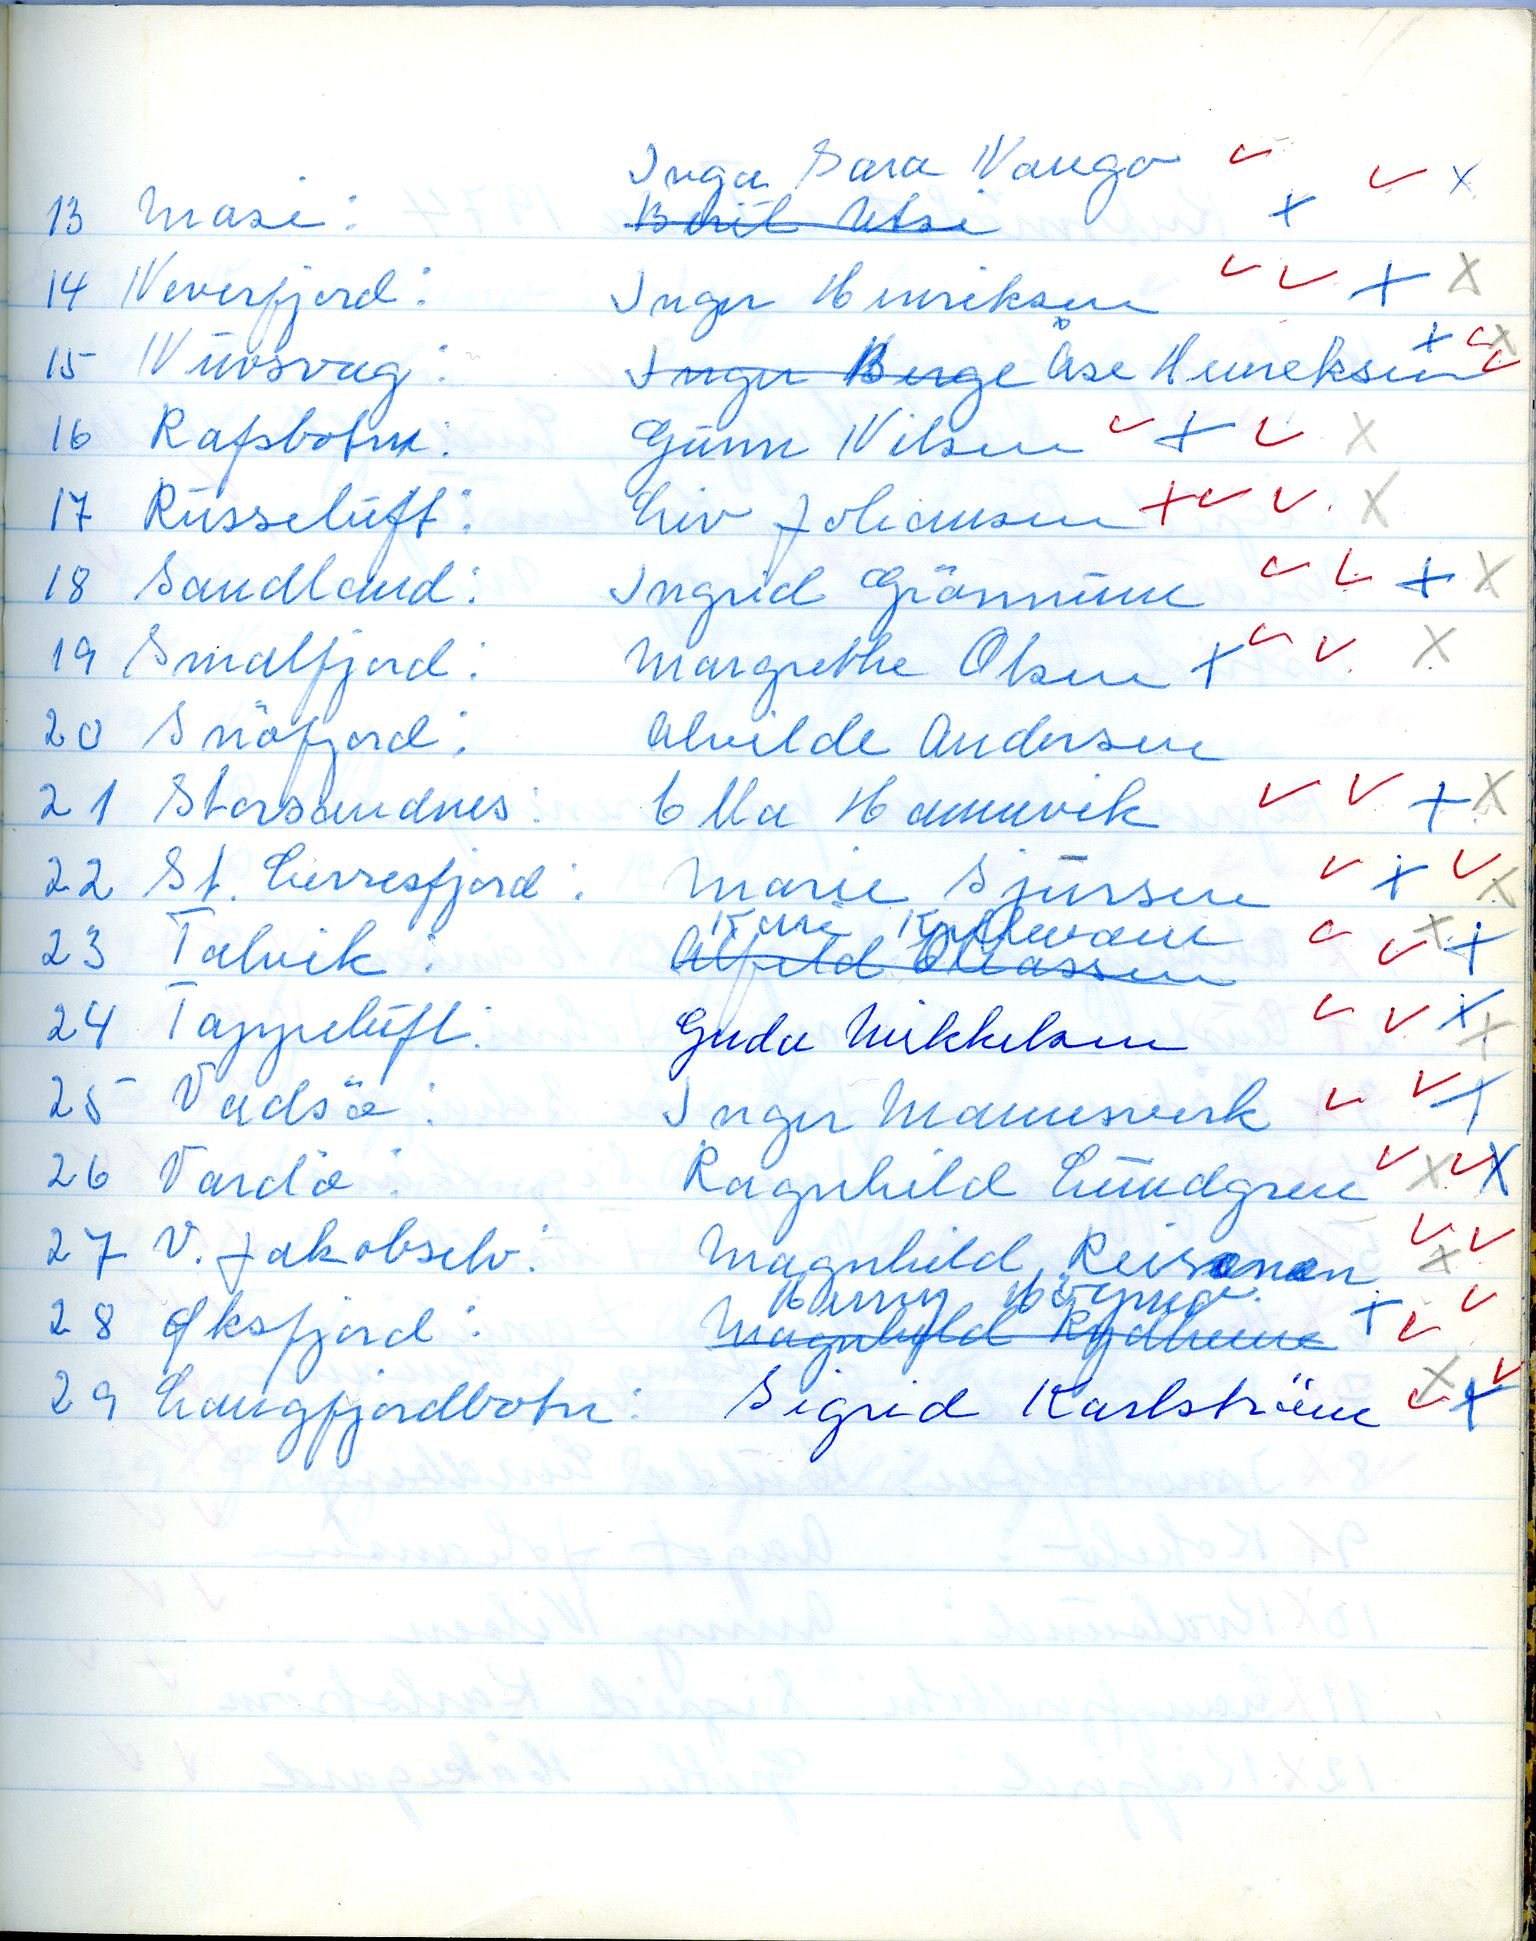 Inga Sara Vango
13 Masi: Berit Utsi
14 Neverfjord: Inger Henriksen
15 Nuvsvag: Inger Berge Åse Henriksen
16 Rafsbotn: Gunn Nilsen
17 Russeluft: Liv Johansen
18 Sandland: Ingrid Grönnum
19 Smalfjord: Margrethe Olsen
20 Snöfjord: Alvilde Andersen
21 Storsandnes: Ella Hannevik
22 St. Lerresfjord: Marie Sjursen
Kari
23 Talvik:
24 Tappeluft: Guda Mikkelsen
25 Vadsö: Inger Mannsverk
26 Vardö: Ragnhild Lundgren
27 V. Jakobselv: Magnhild Reisänen
28 Øksfjord: Magnhild
29 Langfjordbotn: Sigrid Karlström